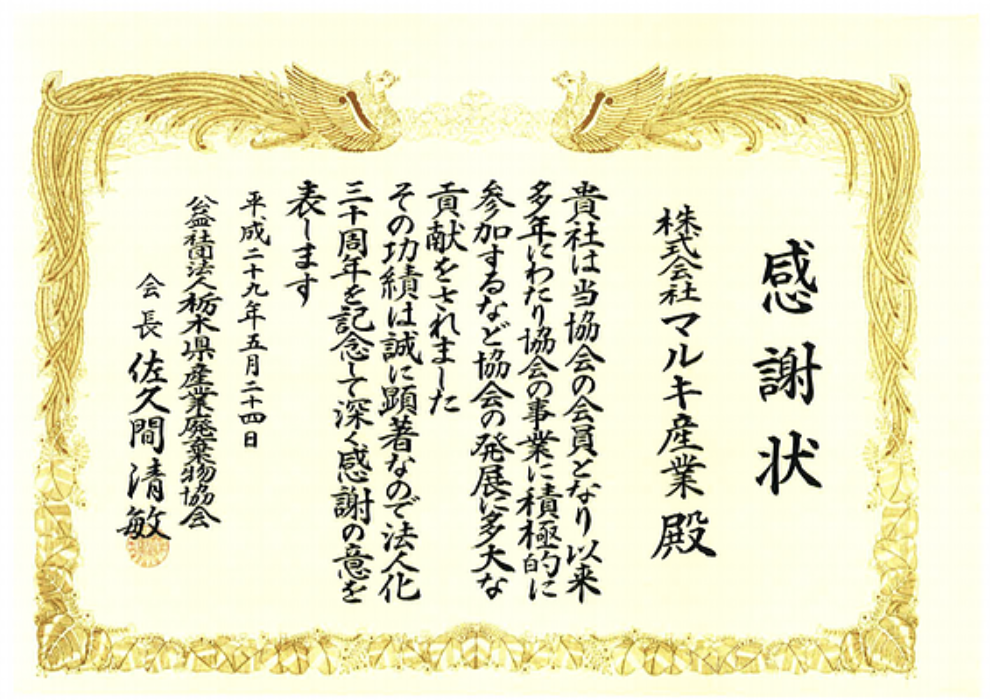 感謝状
株式会社マルキ産業 殿
貴社は当協会の会員となり以来
多年にわたり協会の事業に積極的に
参加するなど協会の発展に多大な
貢献をされました
その功績は誠に顕著なので法人化
三十周年を記念して深く感謝の意を
表します
平成二十九年五月二十四日
公益社団法人栃木県産業廃棄物協会
会長 佐久間清敏